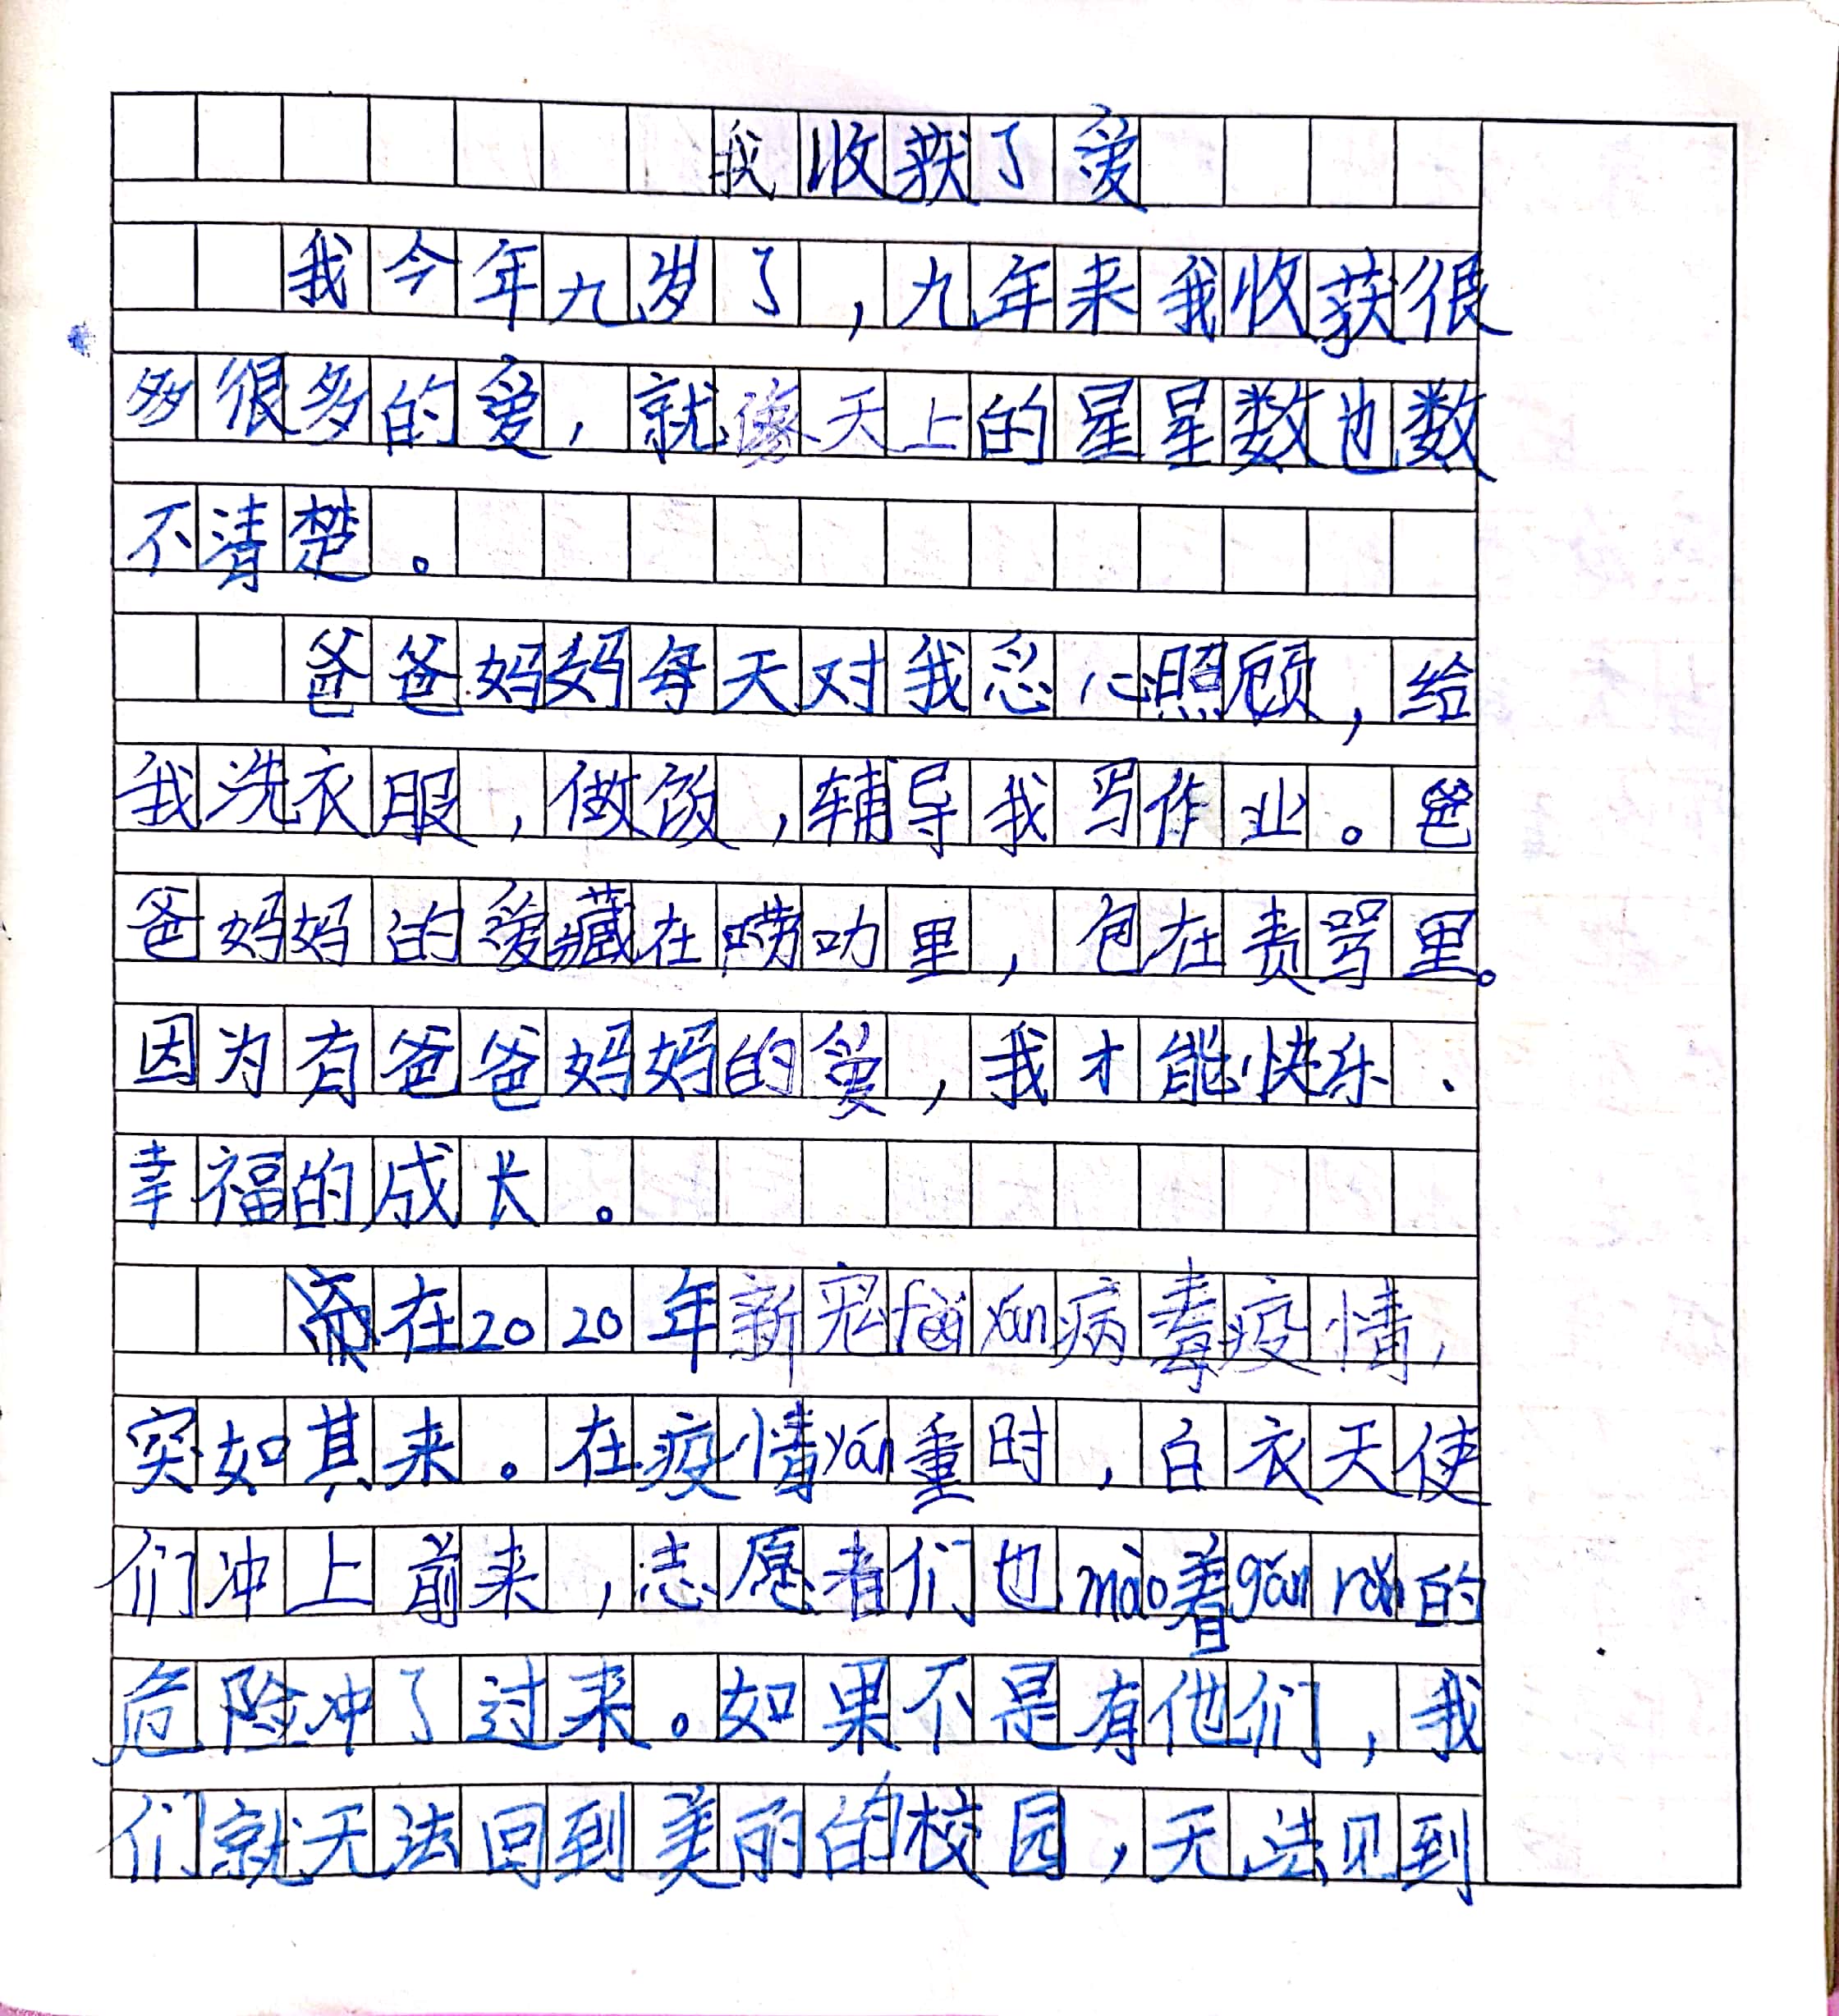 我收获了爱
我今年九岁了，九年来我收获很
多很多的爱，就像天上的星星数也数
不清楚。
爸爸妈妈每天对我忍心照顾，给
我洗衣服，做饭，辅导我写作业。爸
爸妈妈的爱藏在唠叨里，包在责骂里。
因为有爸爸妈妈的爱，我才能快乐、
幸福的成长。
在2020年新冠fèi yán病毒疫情，
突如其来。在疫情yán重时，白衣天使
们冲上前来，志愿者们也mào着gǎn rǎn的
危险冲了过来。如果不是有他们，我
们就无法回到美丽的校园，无法见到